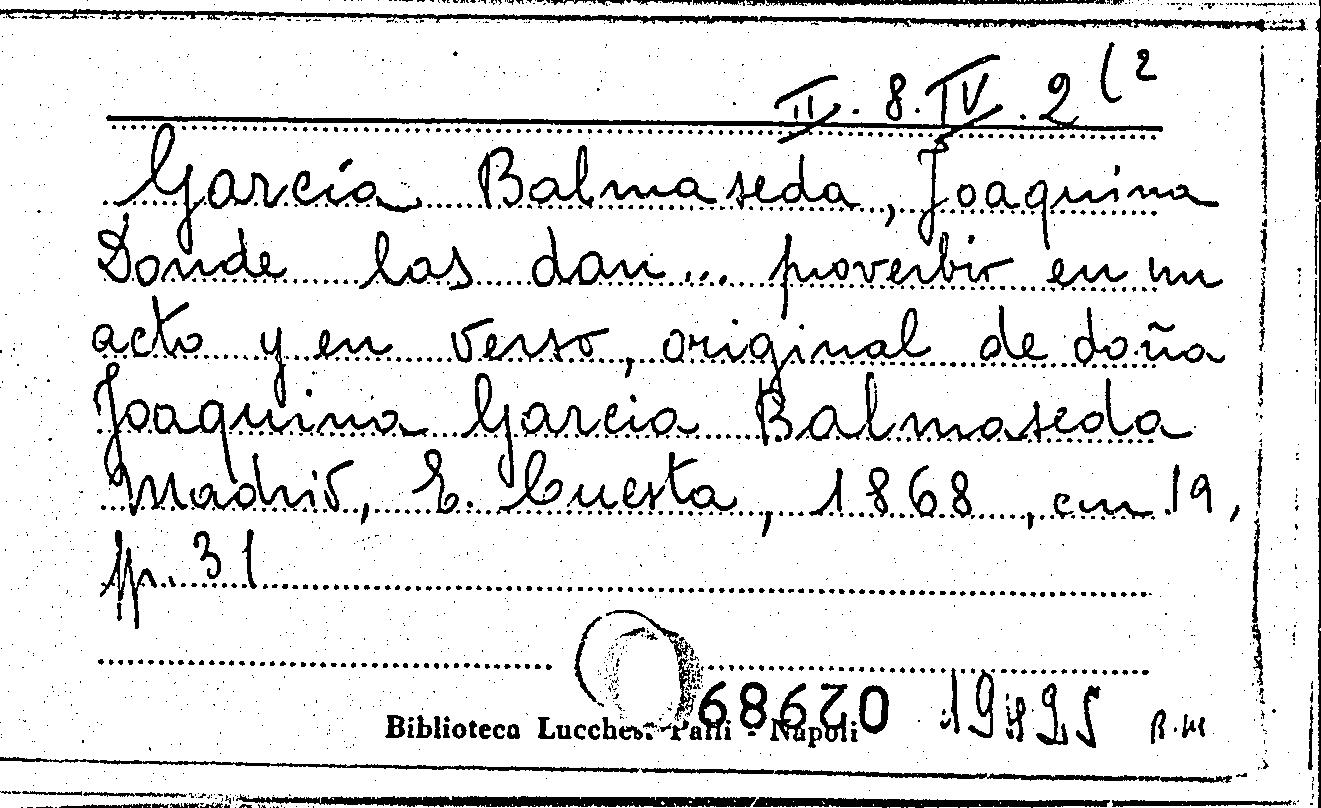 II. 8. IV. 2 (2
García Balmaseda, Joaquina
Donde las dan... proverbio en un
acto y en verso, original de doña
Joaquina Garcia Balmaseda
Madrid, E. Cuesta, 1868, cm 19,
pp. 31
Biblioteca Lucchesi Palli - Napoli